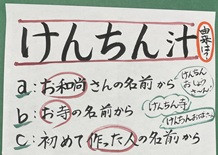 けんちん汁
由来は?
a:お和尚さんの名前から
けんちん
おしょう
さ～ん!
b:お寺の名前から
けんちん寺
c:初めて作った人の名前から